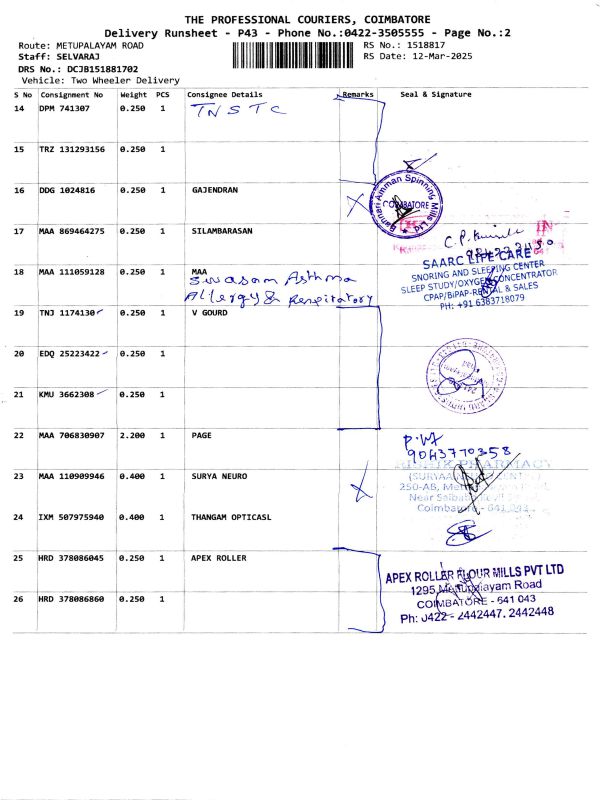 THE PROFESSIONAL COURIERS, COIMBATORE
Delivery Runsheet - P43 - Phone No.:0422-3505555 - Page No.:2
Route: METUPALAYAM ROAD RS No.: 1518817
Staff: SELVARAJ RS Date: 12-Mar-2025
DRS No.: DCJB151881702
Vehicle: Two Wheeler Delivery
S No Consignment No Weight PCS Consignee Details Remarks Seal & Signature
14 DPM 741307 0.250 1 TNSTC
15 TRZ 131293156 0.250 1
16 DDG 1024816 0.250 1 GAJENDRAN
Bannari Amman Spinning Mills Ltd
COIMBATORE
17 MAA 869464275 0.250 1 SILAMBARASAN
SAARC LIFE CARE
SNORING AND SLEEPING CENTER
SLEEP STUDY/OXYGEN CONCENTRATOR
CPAP/BIPAP-RENTAL & SALES
PH: +91 6383718079
18 MAA 111059128 0.250 1 MAA
Swasam Asthma
Allergy & Respiratory
19 TNJ 1174130 0.250 1 V GOURD
20 EDQ 25223422 0.250 1
21 KMU 3662308 0.250 1
22 MAA 706830907 2.200 1 PAGE
9043770358
23 MAA 110909946 0.400 1 SURYA NEURO
PHARMACY
Coimbatore - 641 043
24 IXM 507975940 0.400 1 THANGAM OPTICASL
25 HRD 378086045 0.250 1 APEX ROLLER
APEX ROLLER FLOUR MILLS PVT LTD
1295, Mettupalayam Road
COIMBATORE - 641 043
Ph: 0422 - 2442447, 2442448
26 HRD 378086860 0.250 1